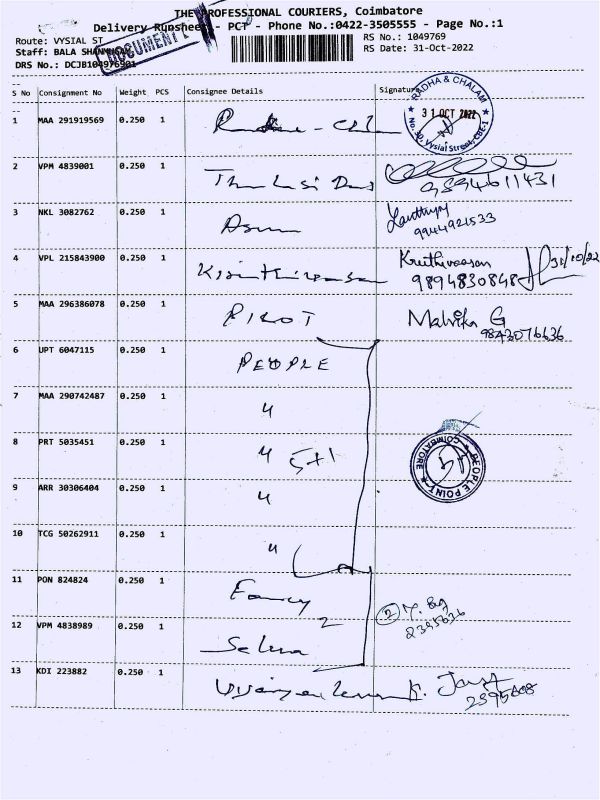 THE PROFESSIONAL COURIERS, Coimbatore
Delivery Runsheet - PCT - Phone No.:0422-3505555 - Page No.:1
Route: VYSIAL ST
RS No.: 1049769
Staff: BALA SHANMUGA
RS Date: 31-Oct-2022
DRS No.: DCJB104976901
DOCUMENT
S No Consignment No Weight PCS Consignee Details Signature
1 MAA 291919569 0.250 1
RADHA & CHALAM
31 OCT 2022
No. 30, Vysial Street, CBE-1
2 VPM 4839001 0.250 1 Thulasi Das 9594611431
3 NKL 3082762 0.250 1 9944921533
4 VPL 215843900 0.250 1 Krithivasan Krithivaasan 9894830848 31/10/22
5 MAA 296386078 0.250 1 PIROT Malvika G 9843076636
6 UPT 6047115 0.250 1 PEOPLE
7 MAA 290742487 0.250 1 "
8 PRT 5035451 0.250 1 " 5+1
PEOPLE POINT COIMBATORE
9 ARR 30306404 0.250 1 "
10 TCG 50262911 0.250 1 "
11 PON 824824 0.250 1 Fancy
2 2395636
12 VPM 4838989 0.250 1 Selva 2
13 KDI 223882 0.250 1 K. 2395808